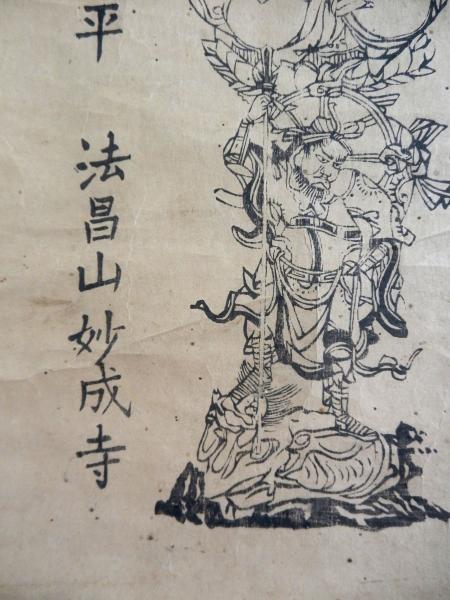 平 法昌山妙成寺